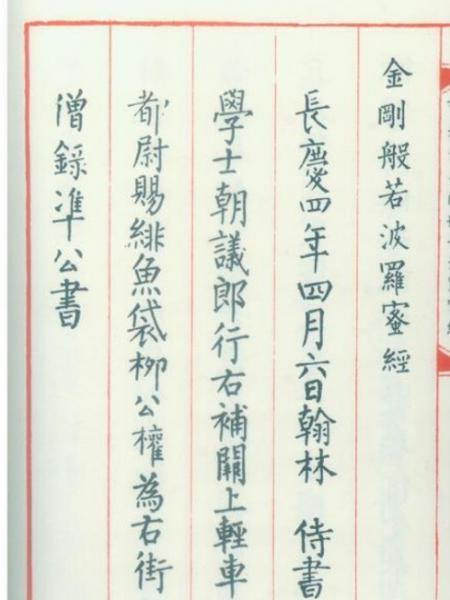 金剛般若波羅蜜經
長慶四年四月六日翰林 侍書
學士朝議郎行右補闕上輕車
都尉賜緋魚袋柳公權為右街
僧錄準公書